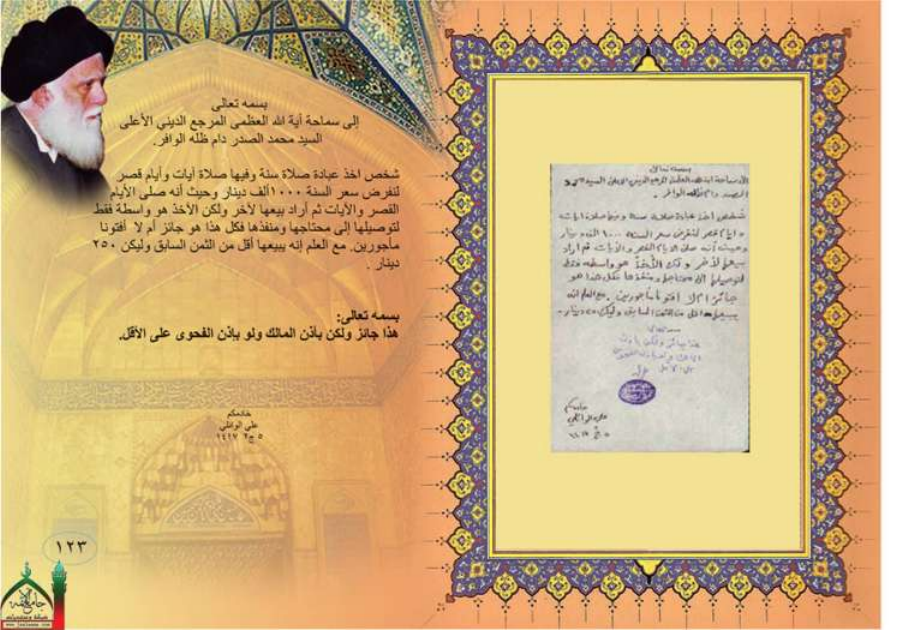 بسمه تعالى
إلى سماحة آية الله العظمى المرجع الديني الأعلى
السيد محمد الصدر دام ظله الوافر.
شخص اخذ عبادة صلاة سنة وفيها صلاة آيات وأيام قصر
لنفرض سعر السنة ١٠٠٠ألف دينار وحيث أنه صلى الأيام
القصر والآيات ثم أراد بيعها لآخر ولكن الآخذ هو واسطة فقط
لتوصيلها إلى محتاجها ومنفذها فكل هذا هو جائز أم لا أفتونا
مأجورين. مع العلم إنه يبيعها أقل من الثمن السابق وليكن ٢٥٠
دينار .
بسمه تعالى:
هذا جائز ولكن بأذن المالك ولو بإذن الفحوى على الأقل.
خادمكم
علي الوائلي
٥ ج٢ ١٤١٧
١٢٣
بسمه تعالى
الى سماحة آية الله العظمى المرجع الديني الاعلى السيد محمد
الصدر دام ظله الوافر .
شخص اخذ عبادة صلاة سنة وفيها صلاة آيات
وايام قصر لنفرض سعر السنة ١٠٠٠ الف دينار
وحيث أنه صلى الايام القصر والآيات ثم اراد
بيعها لآخر ولكن الآخذ هو واسطة فقط
لتوصيلها الى محتاجها ومنفذها فكل هذا هو
جائز ام لا افتونا مأجورين . مع العلم انه
يبيعها اقل من الثمن السابق وليكن ٢٥٠ دينار .
بسمه تعالى
هذا جائز ولكن باذن
المالك ولو باذن الفحوى
على الاقل
خادمكم
علي الوائلي
٥ ج٢ ١٤١٧
www.jaalama.com